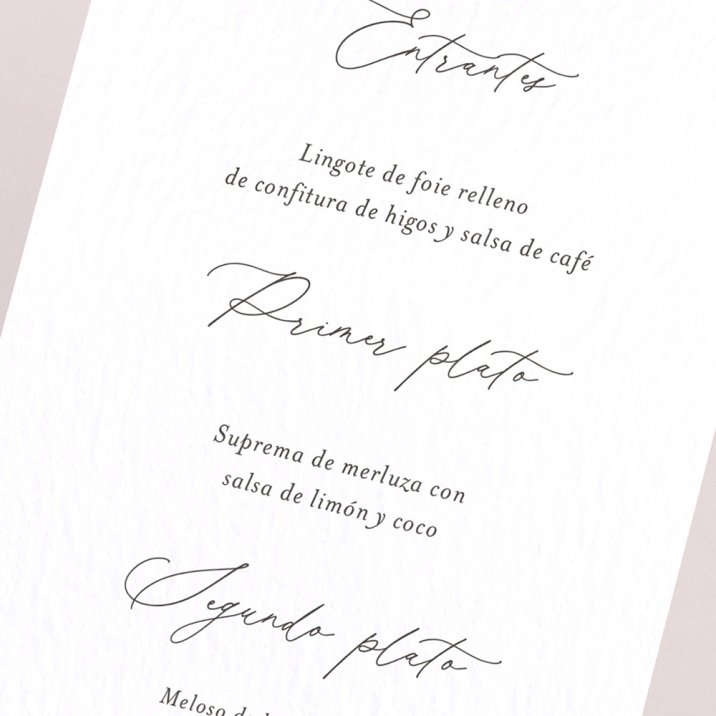 Entrantes
Lingote de foie relleno
de confitura de higos y salsa de café
Primer plato
Suprema de merluza con
salsa de limón y coco
Segundo plato
Meloso